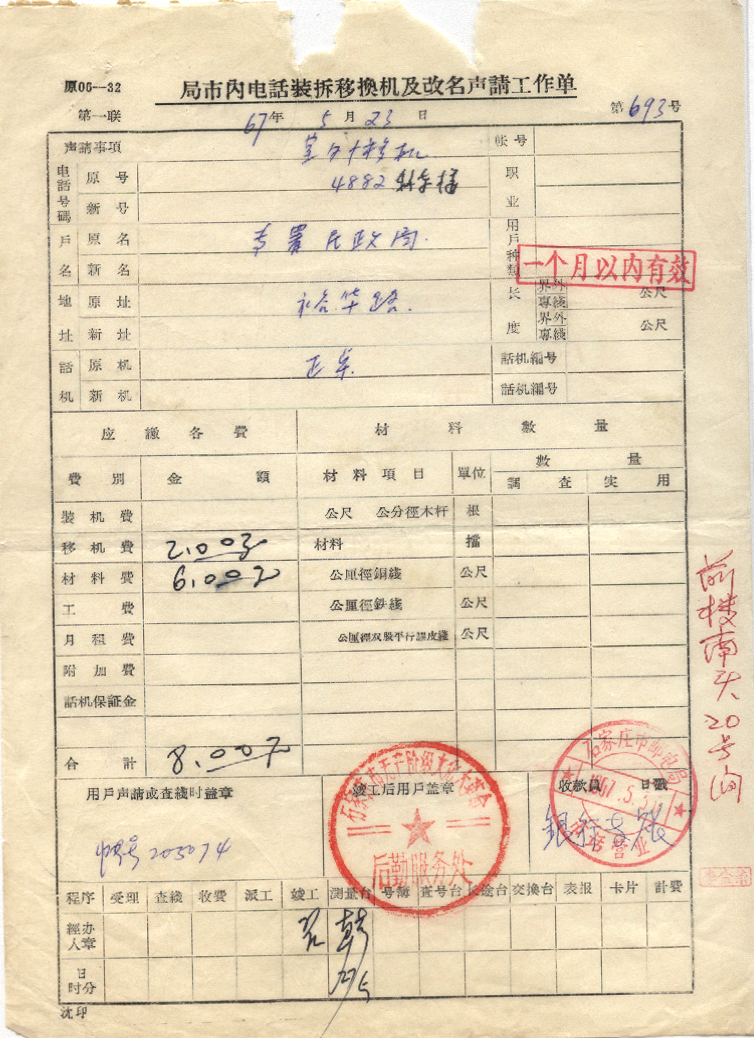 原06--32
局市内电話裝拆移換机及改名声請工作单
第一联 67年 5月23日 第693号
声請事項 室内移机 帐号
电話号碼 原号 4882 职业
新号
戶名 原名 专署民政局 用戶种類
新名 一个月以内有效
地址 原址 裕华路 长度 界外專綫 公尺
新址 界外專綫 公尺
話机 原机 話机編号
新机 話机編号
应繳各費 材料數量
費別 金額 材料項目 單位 數量
調查 实用
裝机費 公尺 公分徑木杆 根
移机費 2.00 材料 擋
材料費 6.00 公厘徑銅綫 公尺
工費 公厘徑鉄綫 公尺
月租費 公厘徑双股平行膠皮綫 公尺
附加費
話机保証金
合計 8.00元
前楼南头20号房
用戶声請或查綫时盖章 竣工后用戶盖章 收款員 日戳
帐号203074
后勤服务处
石家庄市邮电局
1967.5.
营业
程序 受理 查綫 收費 派工 竣工 測量台 号簿 查号台 长途台 交換台 表报 卡片 計費
經办人章
日时分
沈印